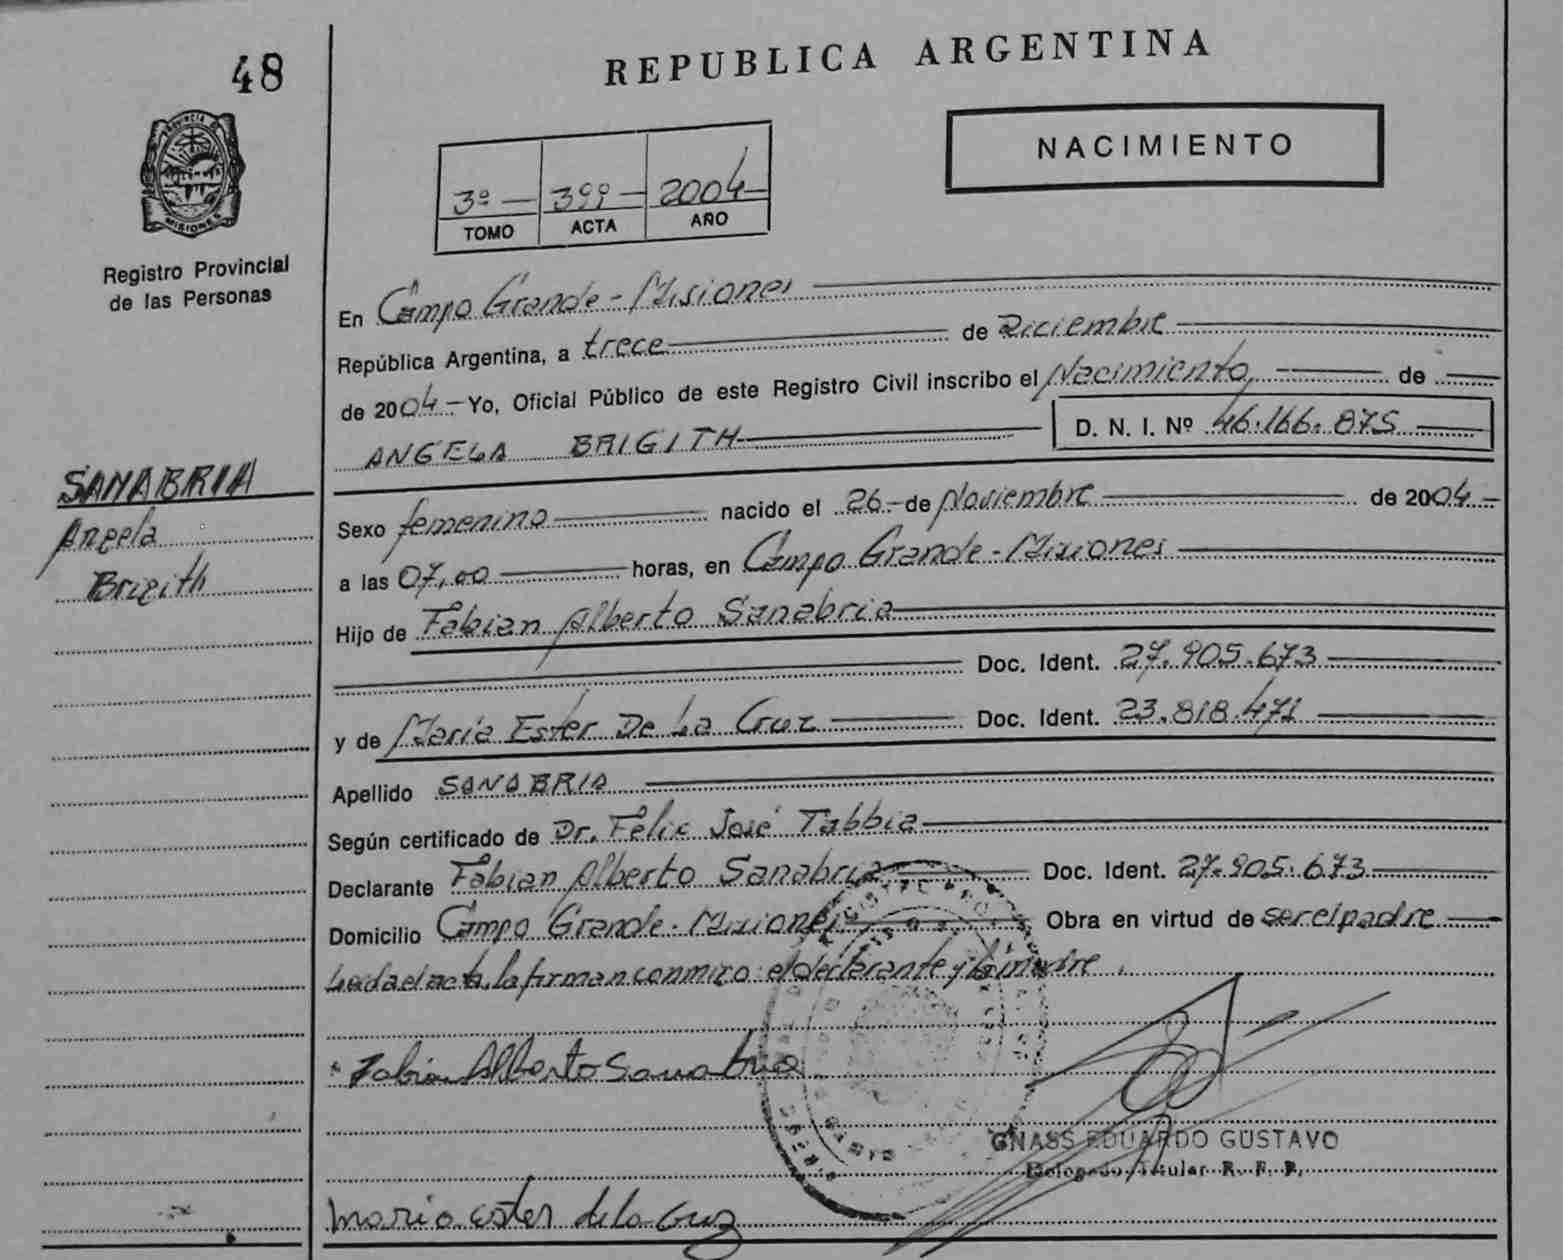 48
REPUBLICA ARGENTINA
NACIMIENTO
PROVINCIA DE
MISIONES
Registro Provincial
de las Personas
3º - 399 - 2004 -
TOMO ACTA AÑO
En Campo Grande - Misiones
República Argentina, a trece de Diciembre
de 2004 - Yo, Oficial Público de este Registro Civil inscribo el Nacimiento de
ANGELA BRIGITH D. N. I. Nº 46.166.875
SANABRIA
Angela
Brigith
Sexo femenino nacido el 26 - de Noviembre de 2004 -
a las 07,00 horas, en Campo Grande - Misiones
Hijo de Fabian Alberto Sanabria
Doc. Ident. 27.905.673
y de María Ester De La Cruz Doc. Ident. 23.818.471
Apellido SANABRIA
Según certificado de Dr. Felix José Tabbia
Declarante Fabian Alberto Sanabria Doc. Ident. 27.905.673
Domicilio Campo Grande - Misiones Obra en virtud de ser el padre
Leida el acta, la firman conmigo: el declarante y la madre.
Fabian Alberto Sanabria
GNASS EDUARDO GUSTAVO
Delegado Titular R. P. P.
Maria ester de la Cruz